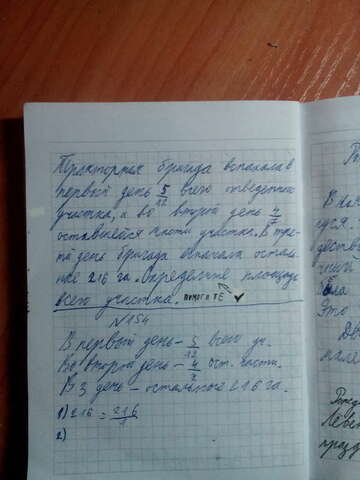 Тракторная бригада вспахала в
первый день 5/12 всего отведенного
участка, а во второй день 4/7
оставшейся части участка. В тре-
тий день бригада вспахала осталь-
ные 216 га. Определите площадь
всего участка. ПОМОГИТЕ
№154
В первый день - 5/12 всего уч.
Во второй день - 4/7 ост. части.
В 3 день - остальное 216 га.
1) 216 = 216/1
2)
В
Это